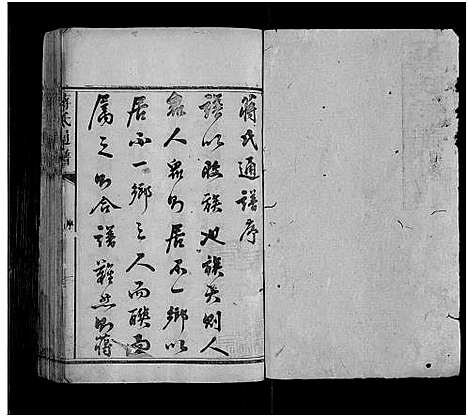 蔣氏通譜序
譜以收族也族大則人
衆人衆則居不一鄉以
居不一鄉之人而聯而
屬之則合譜難然則蔣
蔣氏通譜
序